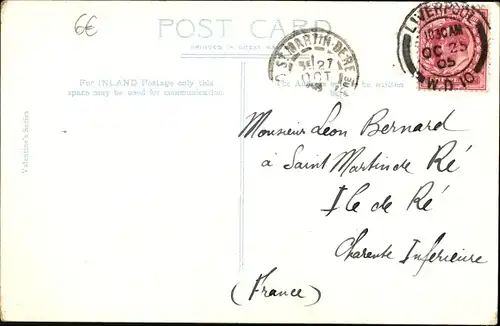 6€
POST CARD
PRINTED IN GREAT
LIVERPOOL
10.30 AM
OC 25
05
W.D.10
ST MARTIN-DE-RÉ
27
OCT
For INLAND Postage only this
space may be used for communication.
The Address to be written
Valentine's Series
Monsieur Léon Bernard
à Saint Martin de Ré
Ile de Ré
Charente Inférieure
(France)